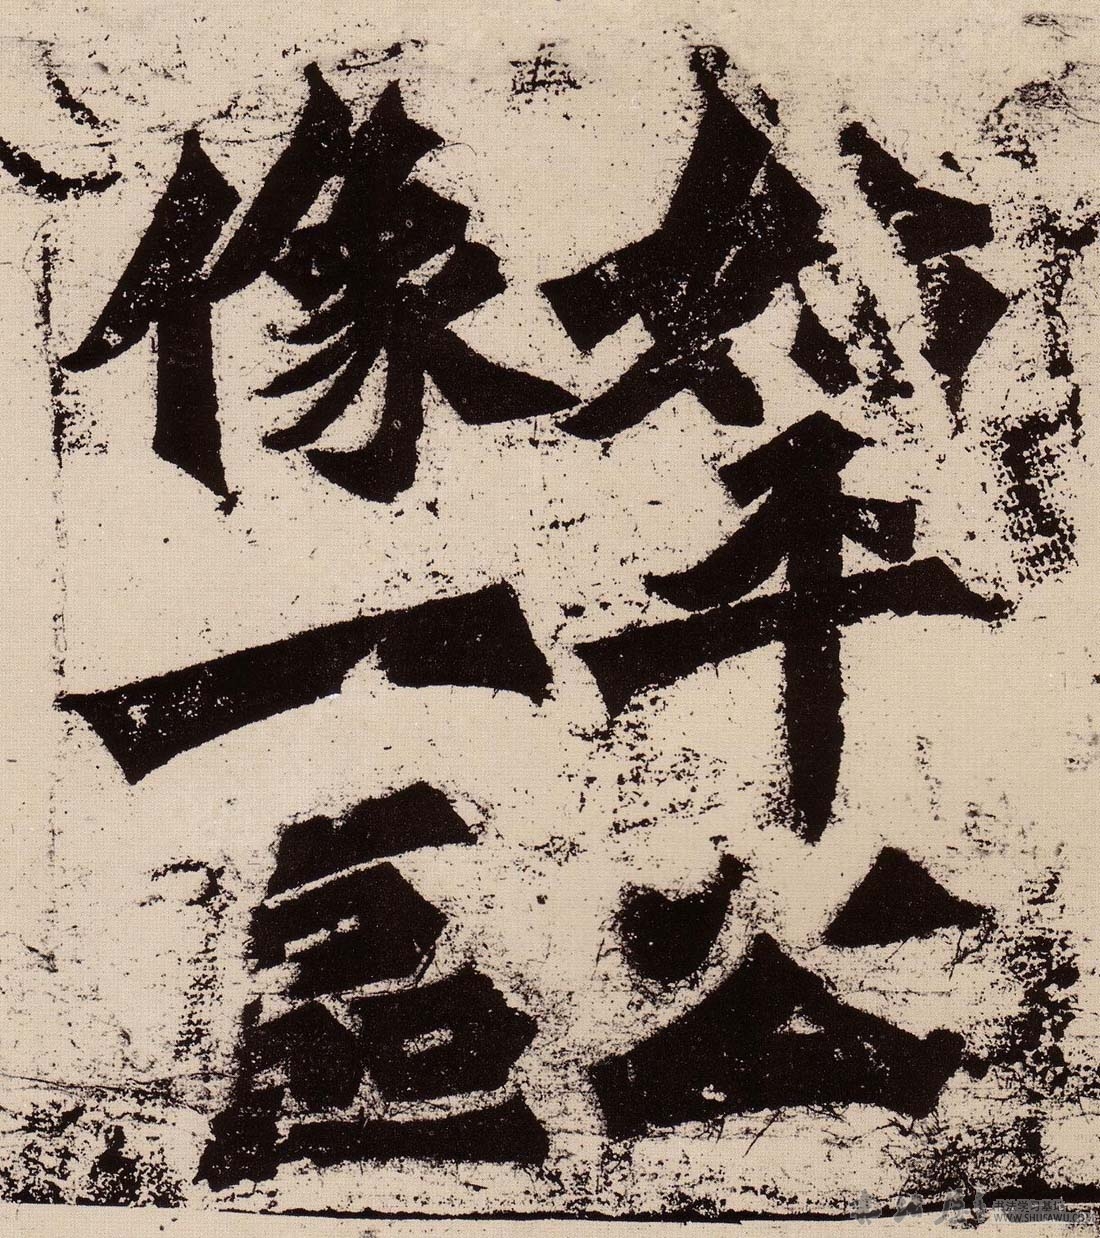 始平公
像一區
WWW.SHUSAWU.COM